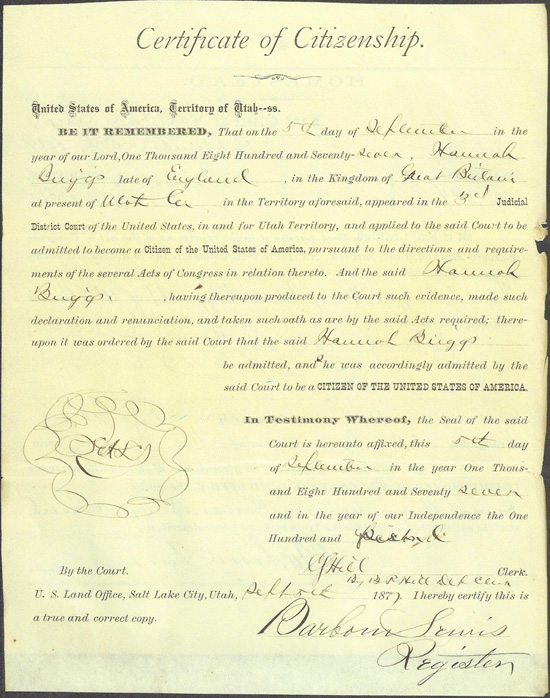 Certificate of Citizenship.
United States of America, Territory of Utah--ss.
BE IT REMEMBERED, That on the 5th day of September in the
year of our Lord, One Thousand Eight Hundred and Seventy-seven, Hannah
Briggs late of England, in the Kingdom of Great Britain
at present of Utah Co in the Territory aforesaid, appeared in the 3d Judicial
District Court of the United States, in and for Utah Territory, and applied to the said Court to be
admitted to become a Citizen of the United States of America, pursuant to the directions and require-
ments of the several Acts of Congress in relation thereto. And the said Hannah
Briggs, having thereupon produced to the Court such evidence, made such
declaration and renunciation, and taken such oath as are by the said Acts required; there-
upon it was ordered by the said Court that the said Hannah Briggs
be admitted, and she was accordingly admitted by the
said Court to be a CITIZEN OF THE UNITED STATES OF AMERICA.
In Testimony Whereof, the Seal of the said
Court is hereunto affixed, this 5th day
of September in the year One Thous-
and Eight Hundred and Seventy seven
and in the year of our Independence the One
Hundred and second
Seal
By the Court. Hill Clerk.
By Hill Dep Clerk
U. S. Land Office, Salt Lake City, Utah, 1877. I hereby certify this is
a true and correct copy.
Lewis
Register